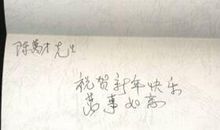 陈万才先生
祝贺新年快乐
万事如意